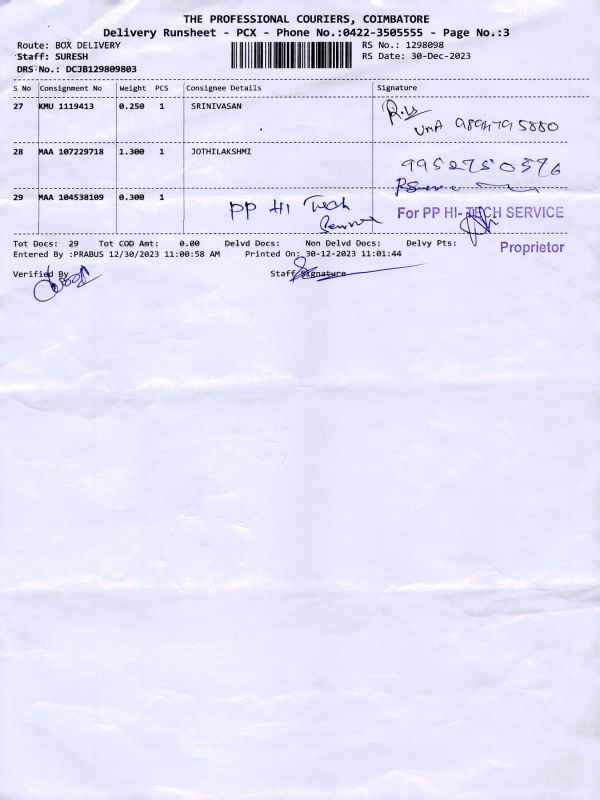 THE PROFESSIONAL COURIERS, COIMBATORE
Delivery Runsheet - PCX - Phone No.:0422-3505555 - Page No.:3
Route: BOX DELIVERY RS No.: 1298098
Staff: SURESH RS Date: 30-Dec-2023
DRS No.: DCJB129809803
S No Consignment No Weight PCS Consignee Details Signature
27 KMU 1119413 0.250 1 SRINIVASAN
UMA
28 MAA 107229718 1.300 1 JOTHILAKSHMI
29 MAA 104538109 0.300 1 PP Hi Tech
For PP HI-TECH SERVICE
Proprietor
Tot Docs: 29 Tot COD Amt: 0.00 Delvd Docs: Non Delvd Docs: Delvy Pts:
Entered By :PRABUS 12/30/2023 11:00:58 AM Printed On: 30-12-2023 11:01:44
Verified By Staff Signature